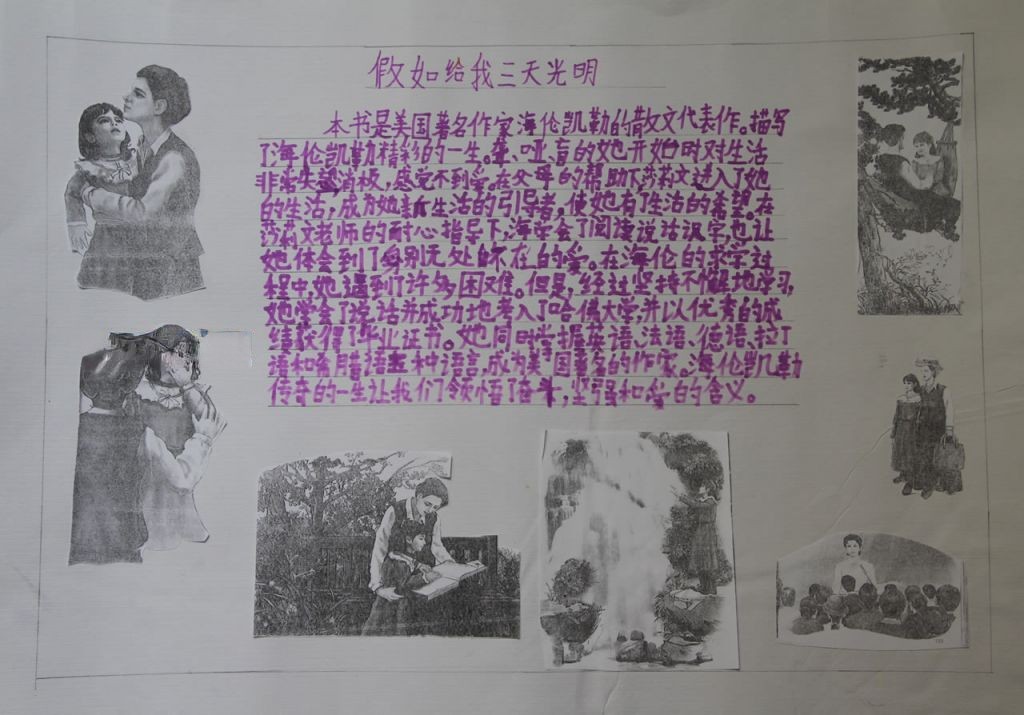 假如给我三天光明
本书是美国著名作家海伦凯勒的散文代表作。描写
了海伦凯勒精彩的一生。聋、哑、盲的她开始时对生活
非常失望消极，感觉不到爱。在父母的帮助下莎莉文进入了她
的生活，成为她新生活的引导者，使她有了生活的希望。在
莎莉文老师的耐心指导下，海伦学会了阅读说话识字也让
她体会到了身边无处不在的爱。在海伦的求学过
程中她遇到了许多困难。但是，经过坚持不懈地学习，
她学会了说话并成功地考入了哈佛大学，并以优秀的成
绩获得了毕业证书。她同时掌握英语、法语、德语、拉丁
语和希腊语五种语言，成为美国著名的作家。海伦凯勒
传奇的一生让我们领悟了奋斗，坚强和爱的含义。